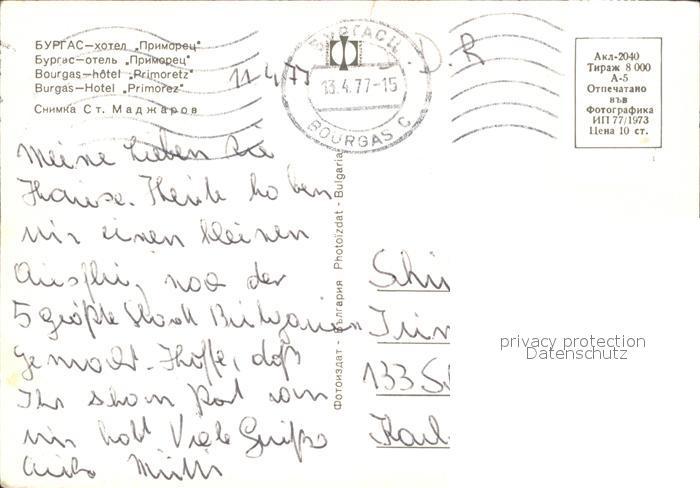 БУРГАС—хотел „Приморец"
Бургас—отель „Приморец"
Bourgas—hôtel „Primoretz"
Burgas—Hotel „Primorez"
Снимка Ст. Маджаров
11.4.77
БУРГАС Ц
13.4.77-15
BOURGAS C
D. R
Акл-2040
Тираж 8 000
А-5
Отпечатано
във
Фотографика
ИП 77/1973
Цена 10 ст.
Meine Lieben zu
Hause. Heute haben
wir einen kleinen
Ausflug, nach der
5 größte Stadt Bulgarien
gemacht. Hoffe, daß
Ihr schon Post von
mir habt Viele Grüße
Mutti
Фотоиздат - България Photoizdat - Bulgaria
Schi
133
Karl
privacy protection
Datenschutz